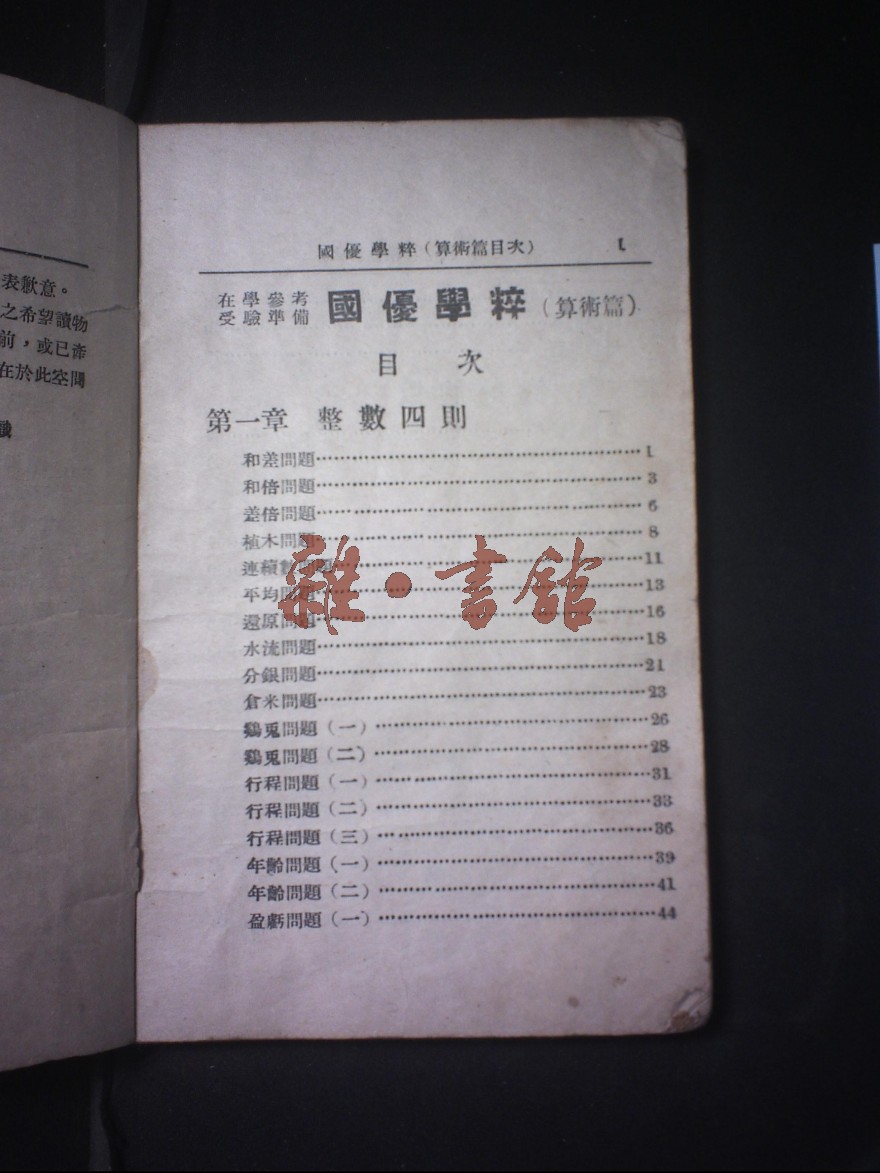 表歉意。
之希望讀物
前，或已許
在於此空間
識
國優學粹（算術篇目次） 1
在學參考
受驗準備 國優學粹（算術篇）
目 次
第一章 整數四則
和差問題 1
和倍問題 3
差倍問題 6
植木問題 8
連續數問題 11
平均問題 13
還原問題 16
水流問題 18
分銀問題 21
倉米問題 23
鷄兎問題（一） 26
鷄兎問題（二） 28
行程問題（一） 31
行程問題（二） 33
行程問題（三） 36
年齡問題（一） 39
年齡問題（二） 41
盈虧問題（一） 44
雜·書館